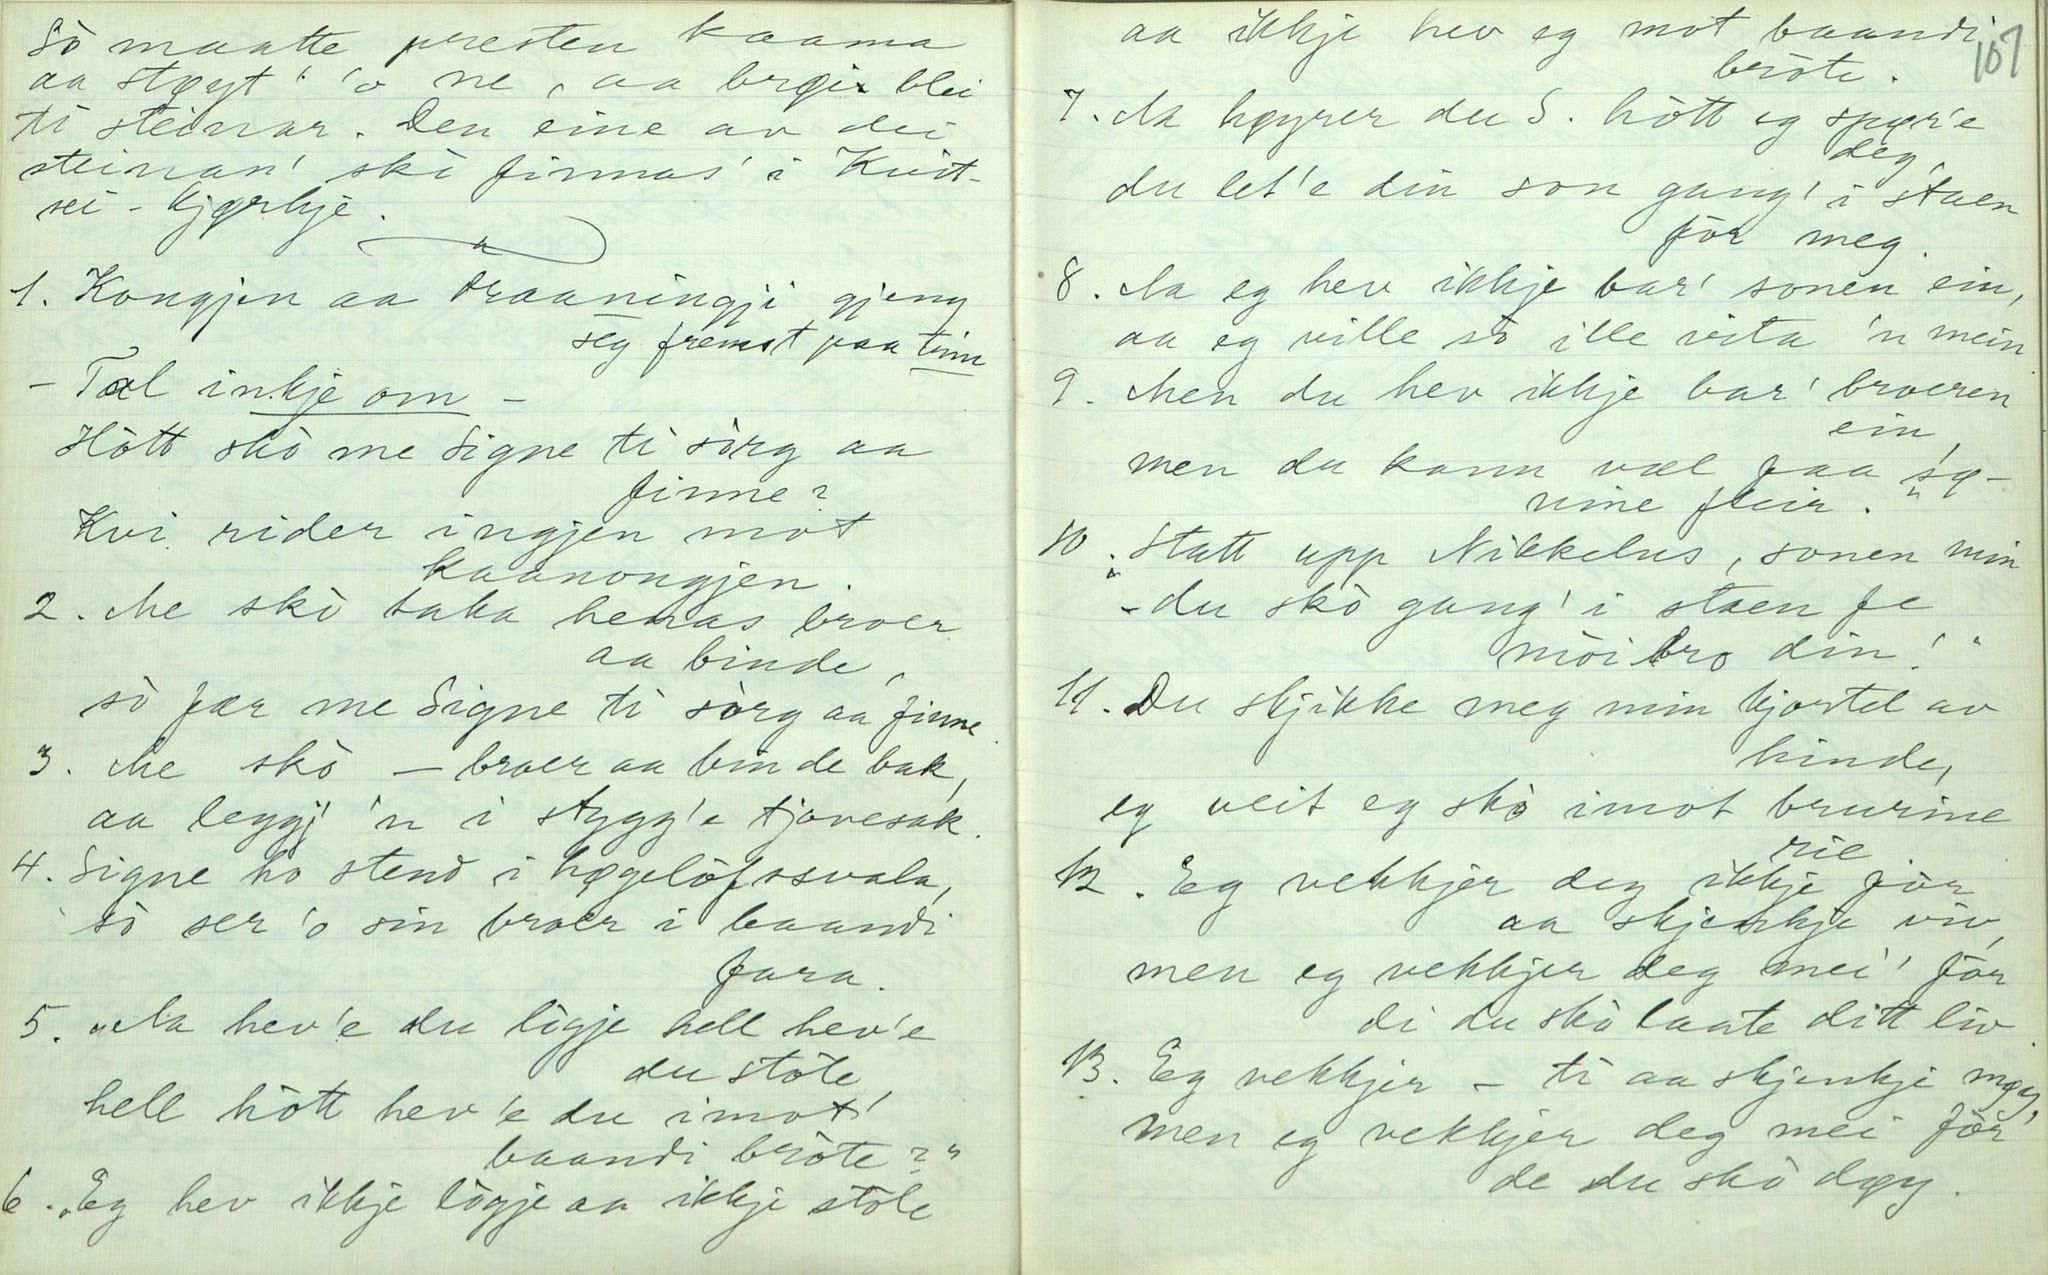 Sò maatte presten kaama
aa støyt' 'o ne, aa brøi blei
ti steinar. Den eine av dei
steinan' skò finnas' i Kvit-
sei-kjørkje.
1. Kongjen aa draaningji gjeng
seg fremst paa tinn
- Tal inkje om -
Hòtt skò me Signe ti sòrg aa
finne?
Kvi rider ingjen mot
kaanongjen.
2. Me skò taka henas broer
aa binde,
sò fær me Signe ti sòrg aa finne.
3. Me skò — broer aa binde bak,
aa leggj' 'n i stygg'e tjovesak.
4. Signe ho stend i høgelòfssvala,
sò ser 'o sin broer i baandi
fara.
5. „Aa hev'e du lògje hell hev'e
du stòle,
hell hòtt hev'e du imot'
baandi bròte?"
6. „Eg hev ikkje lògje aa ikkje stòle
107
aa ikkje hev eg mot baandi
bròte.
7. Aa høyrer du S. hòtt eg spør'e
deg,
du let'e din son gang' i staen
fòr meg.
8. Aa eg hev ikkje bar' sonen ein,
aa eg ville sò ille vita 'n mein
9. Men du hev ikkje bar' broeren
ein,
men du kann væl faa sø-
nine fleir."
10. „Statt upp Nikkelus, sonen min
- du skò gang' i staen fe
mòibro din!"
11. Du skjikke meg min kjortel av
hinde,
eg veit eg skò imot brurine
rie
12. Eg vekkjer deg ikkje fòr
aa skjenkje viv,
men eg vekkjer deg mei' fòr
di du skò laate ditt liv.
13. Eg vekkjer — ti aa skjenkje møy,
men eg vekkjer deg mei fòr
de du skò døy.